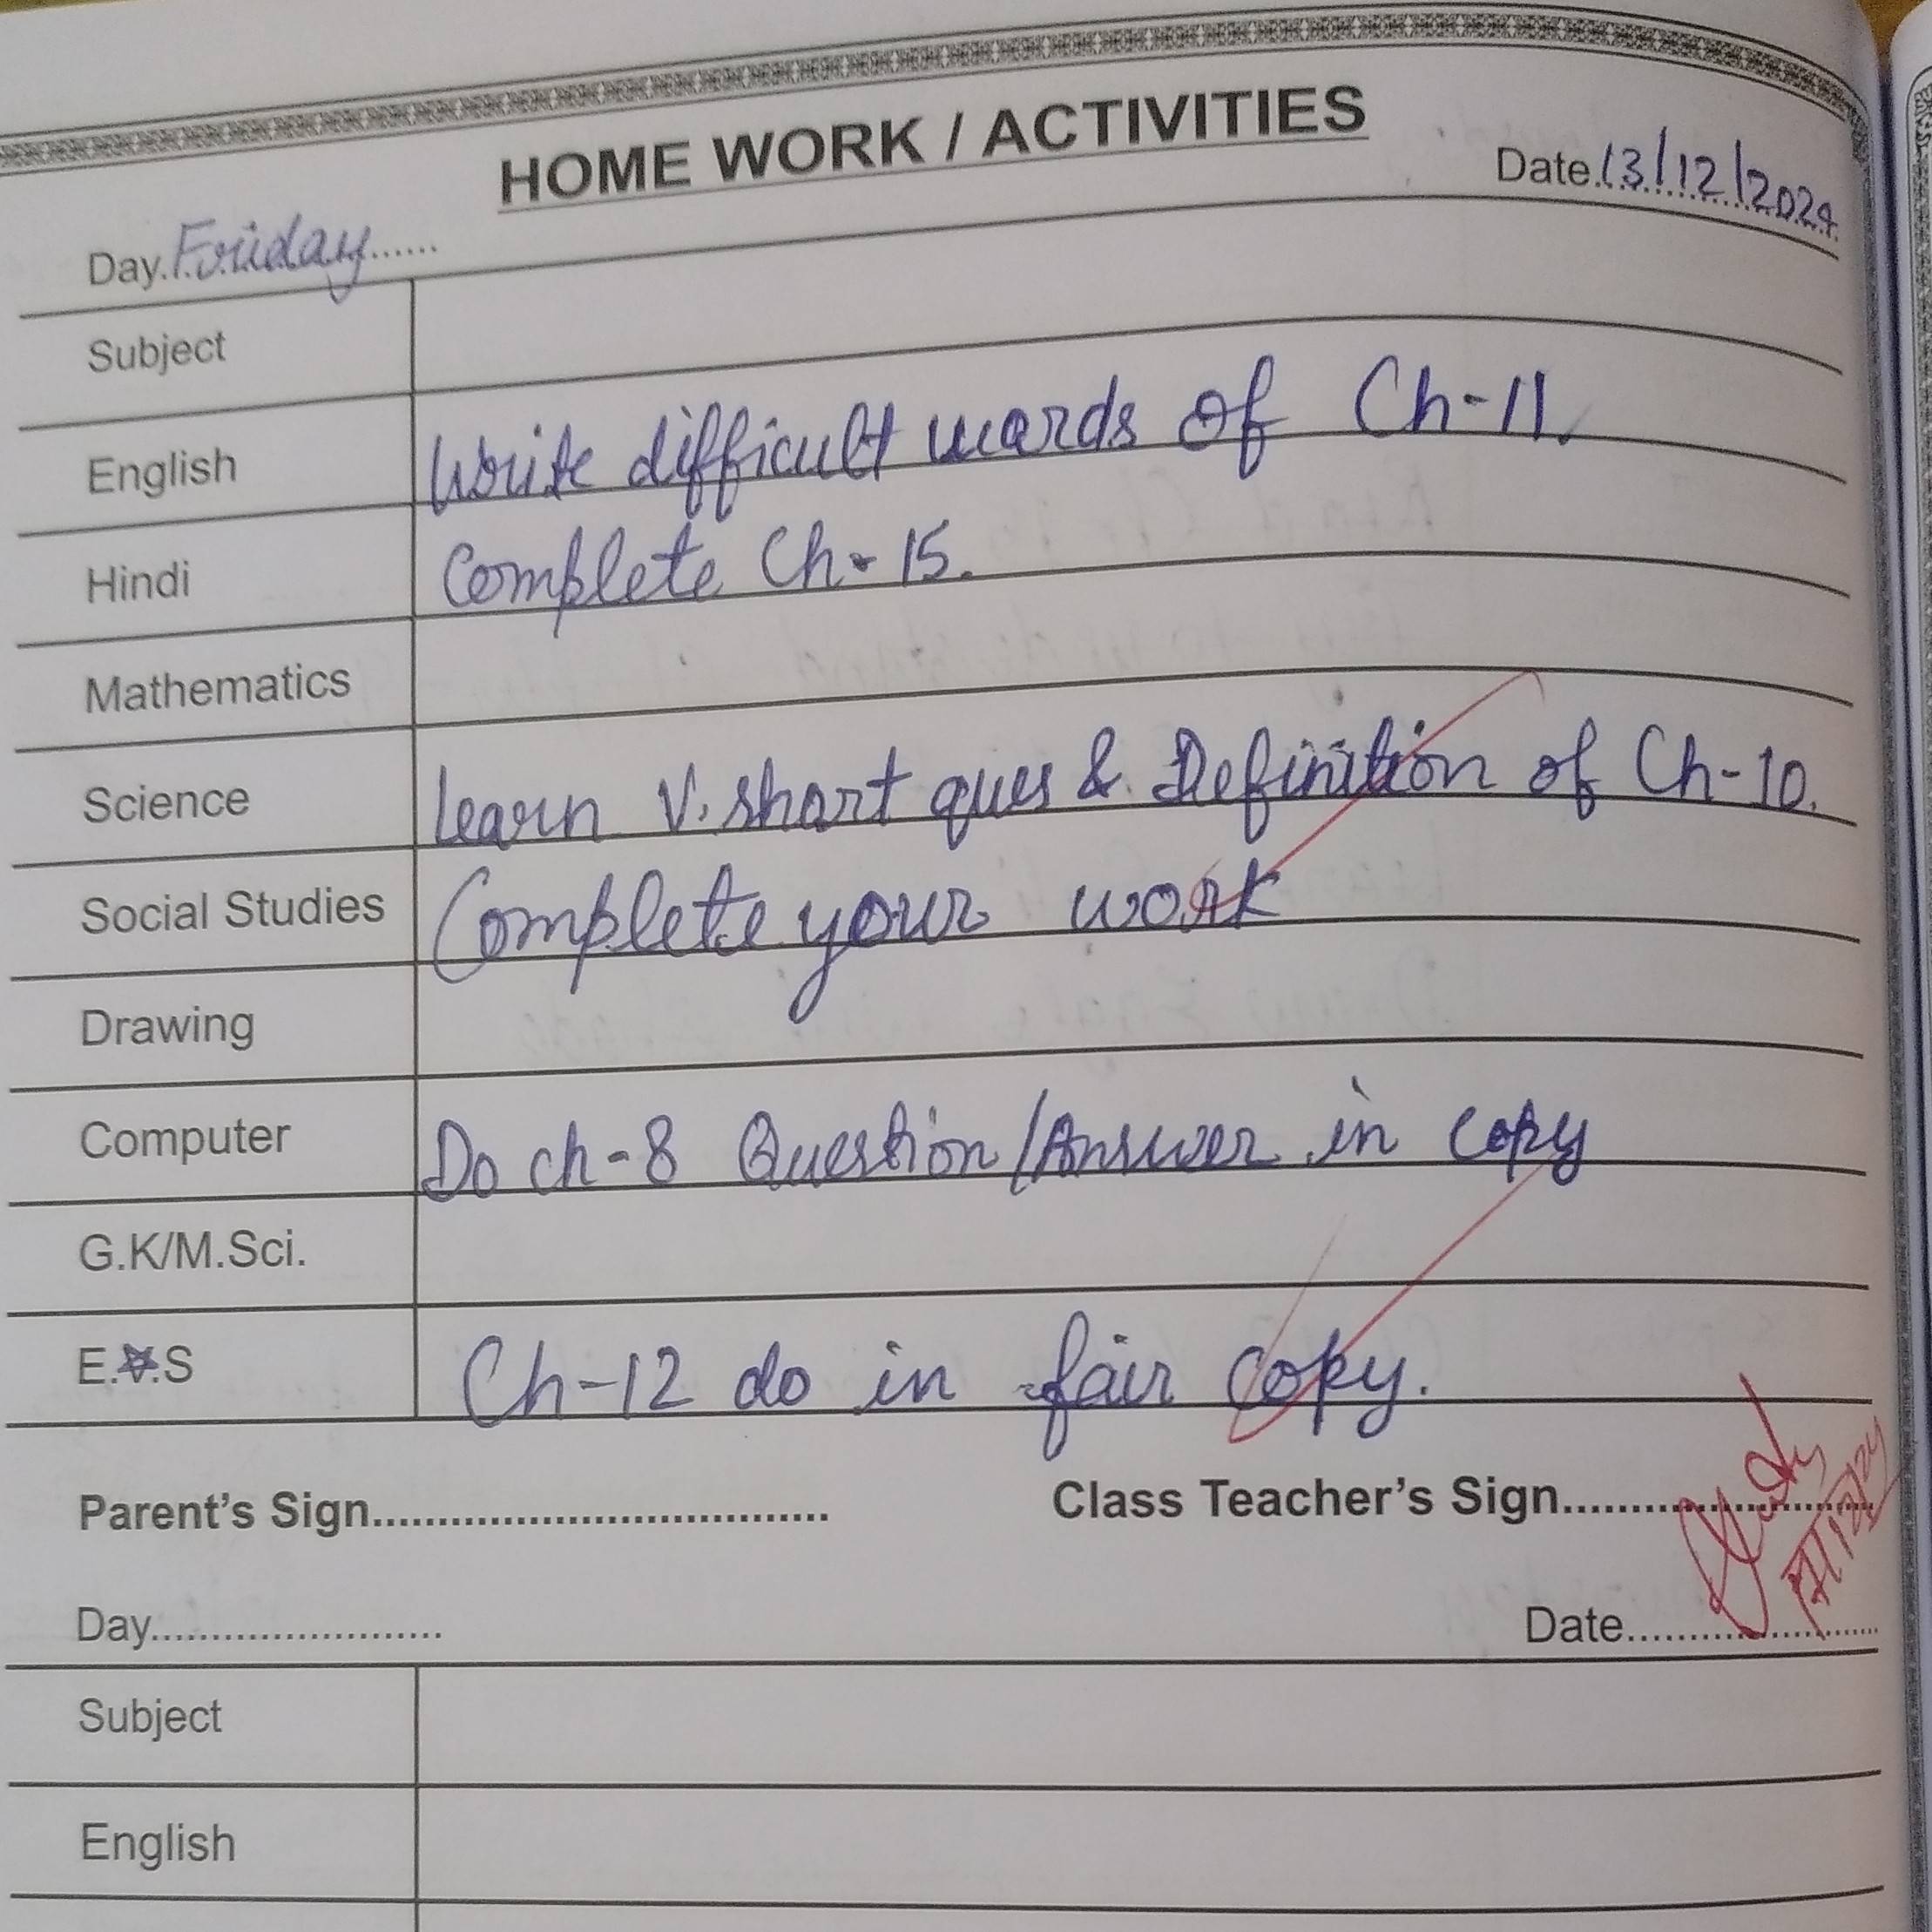 HOME WORK / ACTIVITIES
Day. Friday...... Date. 13/12/2024
Subject
English Write difficult words of Ch-11.
Hindi Complete Ch-15.
Mathematics
Science Learn V. short ques & Definition of Ch-10.
Social Studies Complete your work
Drawing
Computer Do ch-8 Question/Answer in copy
G.K/M.Sci.
E. .S Ch-12 do in fair copy.
Parent's Sign.................................. Class Teacher's Sign........................
Day........................ Date....................
Subject
English